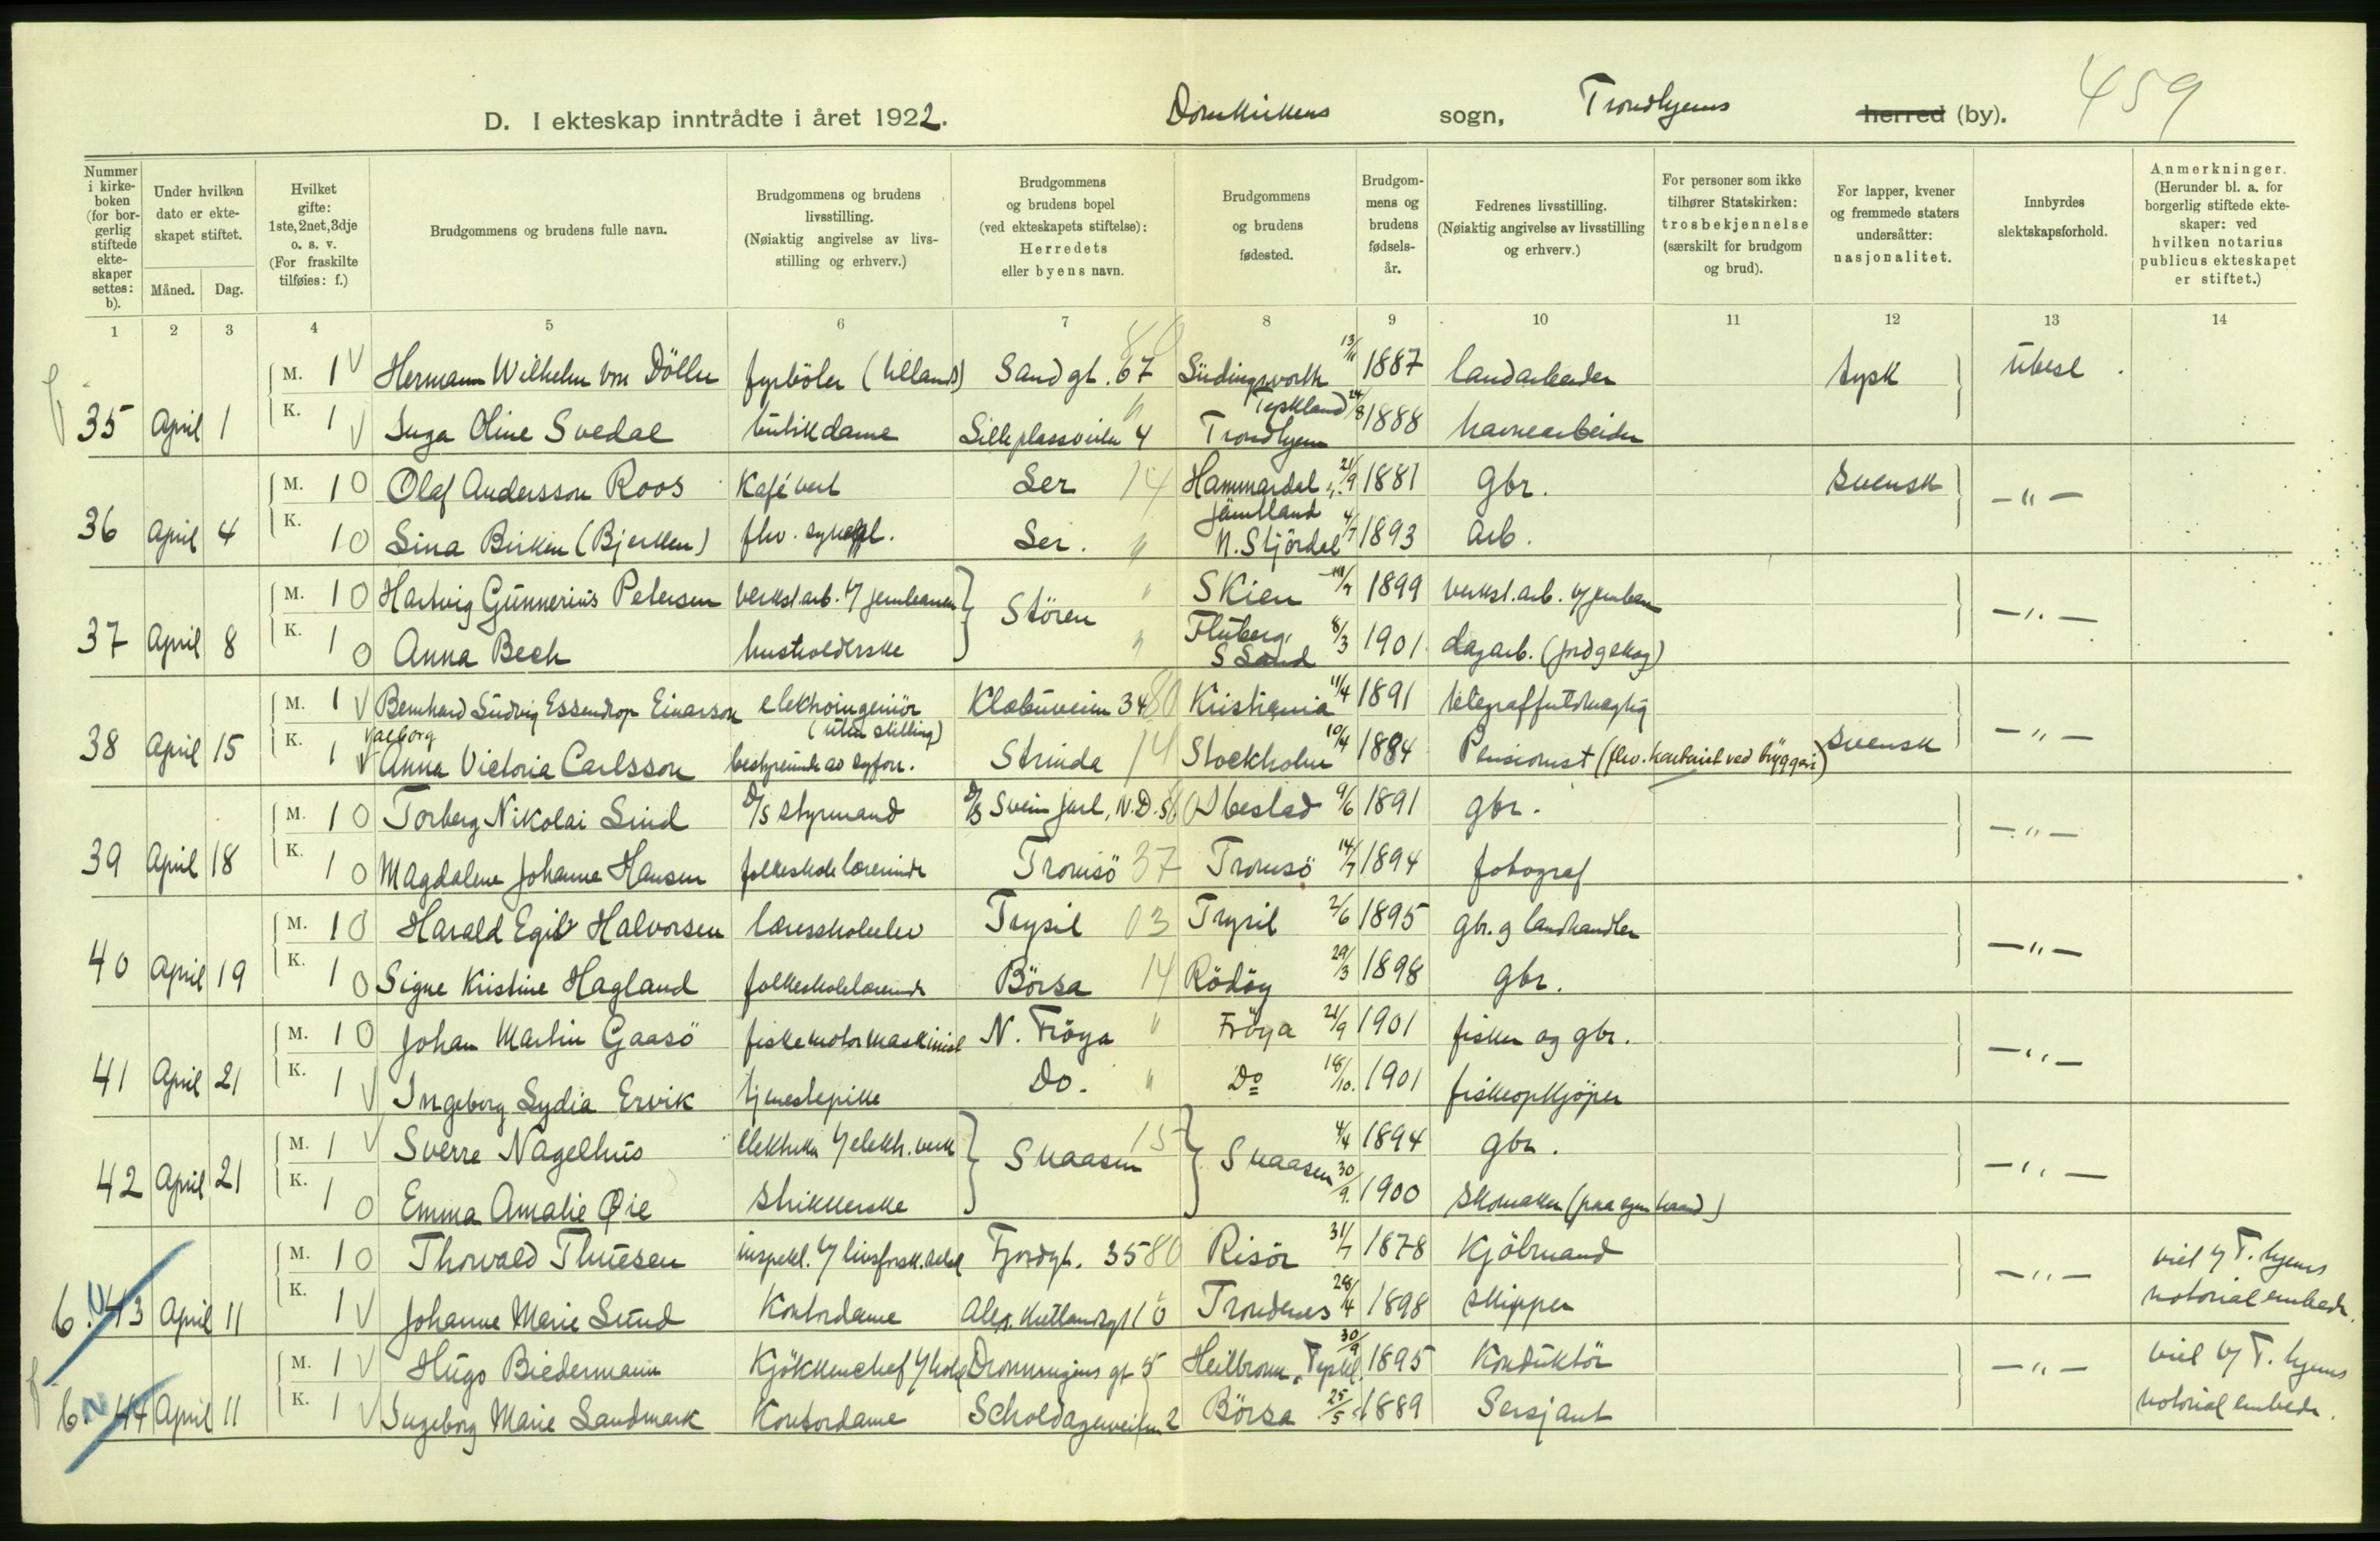 D. I ekteskap inntrådte i året 1922. Domkirkens sogn, Trondhjems herred (by). 459
Nummer i kirkeboken (for borgerlig stiftede ekteskaper settes: b).
Under hvilken dato er ekteskapet stiftet. Måned. Dag.
Hvilket gifte: 1ste, 2net, 3dje o. s. v. (For fraskilte tilføies: f.)
Brudgommens og brudens fulle navn.
Brudgommens og brudens livsstilling. (Nøiaktig angivelse av livsstilling og erhverv.)
Brudgommens og brudens bopel (ved ekteskapets stiftelse): Herredets eller byens navn.
Brudgommens og brudens fødested.
Brudgommens og brudens fødselsår.
Fedrenes livsstilling. (Nøiaktig angivelse av livsstilling og erhverv.)
For personer som ikke tilhører Statskirken: trosbekjennelse (særskilt for brudgom og brud).
For lapper, kvener og fremmede staters undersåtter: nasjonalitet.
Innbyrdes slektskapsforhold.
Anmerkninger. (Herunder bl. a. for borgerlig stiftede ekteskaper: ved hvilken notarius publicus ekteskapet er stiftet.)
1 2 3 4 5 6 7 8 9 10 11 12 13 14
M. 1 V Hermann Wilhelm von Döllen fyrböter (utlands) Sandgt. 67 80 Südingsworth Tyskland 13/11 1887 landarbeider tysk ubesl.
35 April 1 K. 1 V Inga Oline Svedal butikdame Lilleplassveien 4 " Trondhjem 24/8 1888 havnearbeider
M. 1 0 Olaf Andersson Roos Kafévert Ler 14 Hammardal, Jämtland 21/9 1881 gbr. Svensk - " -
36 April 4 K. 1 0 Lina Birken (Bjerken) fhv. Ler. " N. Stjördal 4/7 1893 arb.
M. 1 0 Hartvig Gunnerius Petersen verkst.arb. v/ jernbanen Stören " Skien 1899 verkst.arb. v/ jernban - " -
37 April 8 K. 1 0 Anna Bech husholderske " Fluberg, S Land 8/3 1901 dagarb. (jord g skog)
M. 1 V Bernhard Ludvig Essendrop Einarson elektroingeniör (uten stilling) Klæbuveien 34 80 Kristiania 11/4 1891 telegraffuldmægtig - " -
38 April 15 K. 1 V Valborg Anna Victoria Carlsson bestyrerinde av syforr. Strinda 14 Stockholm 10/4 1884 Pensionist (fhv. kontorist ved bryggeri) Svensk
M. 1 0 Torberg Nikolai Lind D/S styrmand D/S Svein Jarl, N.D.S. Ibestad 9/6 1891 gbr. - " -
39 April 18 K. 1 0 Magdalene Johanne Hansen folkeskolelærerinde Tromsö 37 Tromsö 14/7 1894 fotograf
M. 1 0 Harald Egil Halvorsen lærerskoleelev Trysil 03 Trysil 2/6 1895 gbr. g landhandler - " -
40 April 19 K. 1 0 Signe Kristine Hagland folkeskolelærerinde Börsa 14 Rödöy 29/3 1898 gbr.
M. 1 0 Johan Martin Gaasö fiskemotormaskinist N. Fröya " Fröya 21/9 1901 fisker og gbr. - " -
41 April 21 K. 1 V Ingeborg Lydia Ervik tjenestepike Do. " Do 18/10. 1901 fiskeopkjöper
M. 1 V Sverre Nagelhus elektriker v/ elektr. verk Snaasen 15 Snaasen 4/4 1894 gbr. - " -
42 April 21 K. 1 0 Emma Amalie Øie strikkerske 30/9. 1900 skomaker (paa egen haand)
M. 1 0 Thorvald Thuesen inspekt. v/ livsforsk.selsk Fjordgt. 35 80 Risör 31/7 1878 Kjöbmand - " - viet v/ T.hjems
b. 43 April 11 K. 1 V Johanne Marie Lund Kontordame Trondenes 28/4 1898 skipper notorialembede.
M. 1 V Hugo Biedermann Kjökkenchef v/ hotel Dronningens gt 5 Heilbronn, Tyskl. 30/9 1895 Konduktör - " - viet v/ T.hjems
b. 44 April 11 K. 1 V Ingeborg Marie Landmark Kontordame Scholdagerveien 2 Börsa 25/5 1889 Sersjant notorialembede.